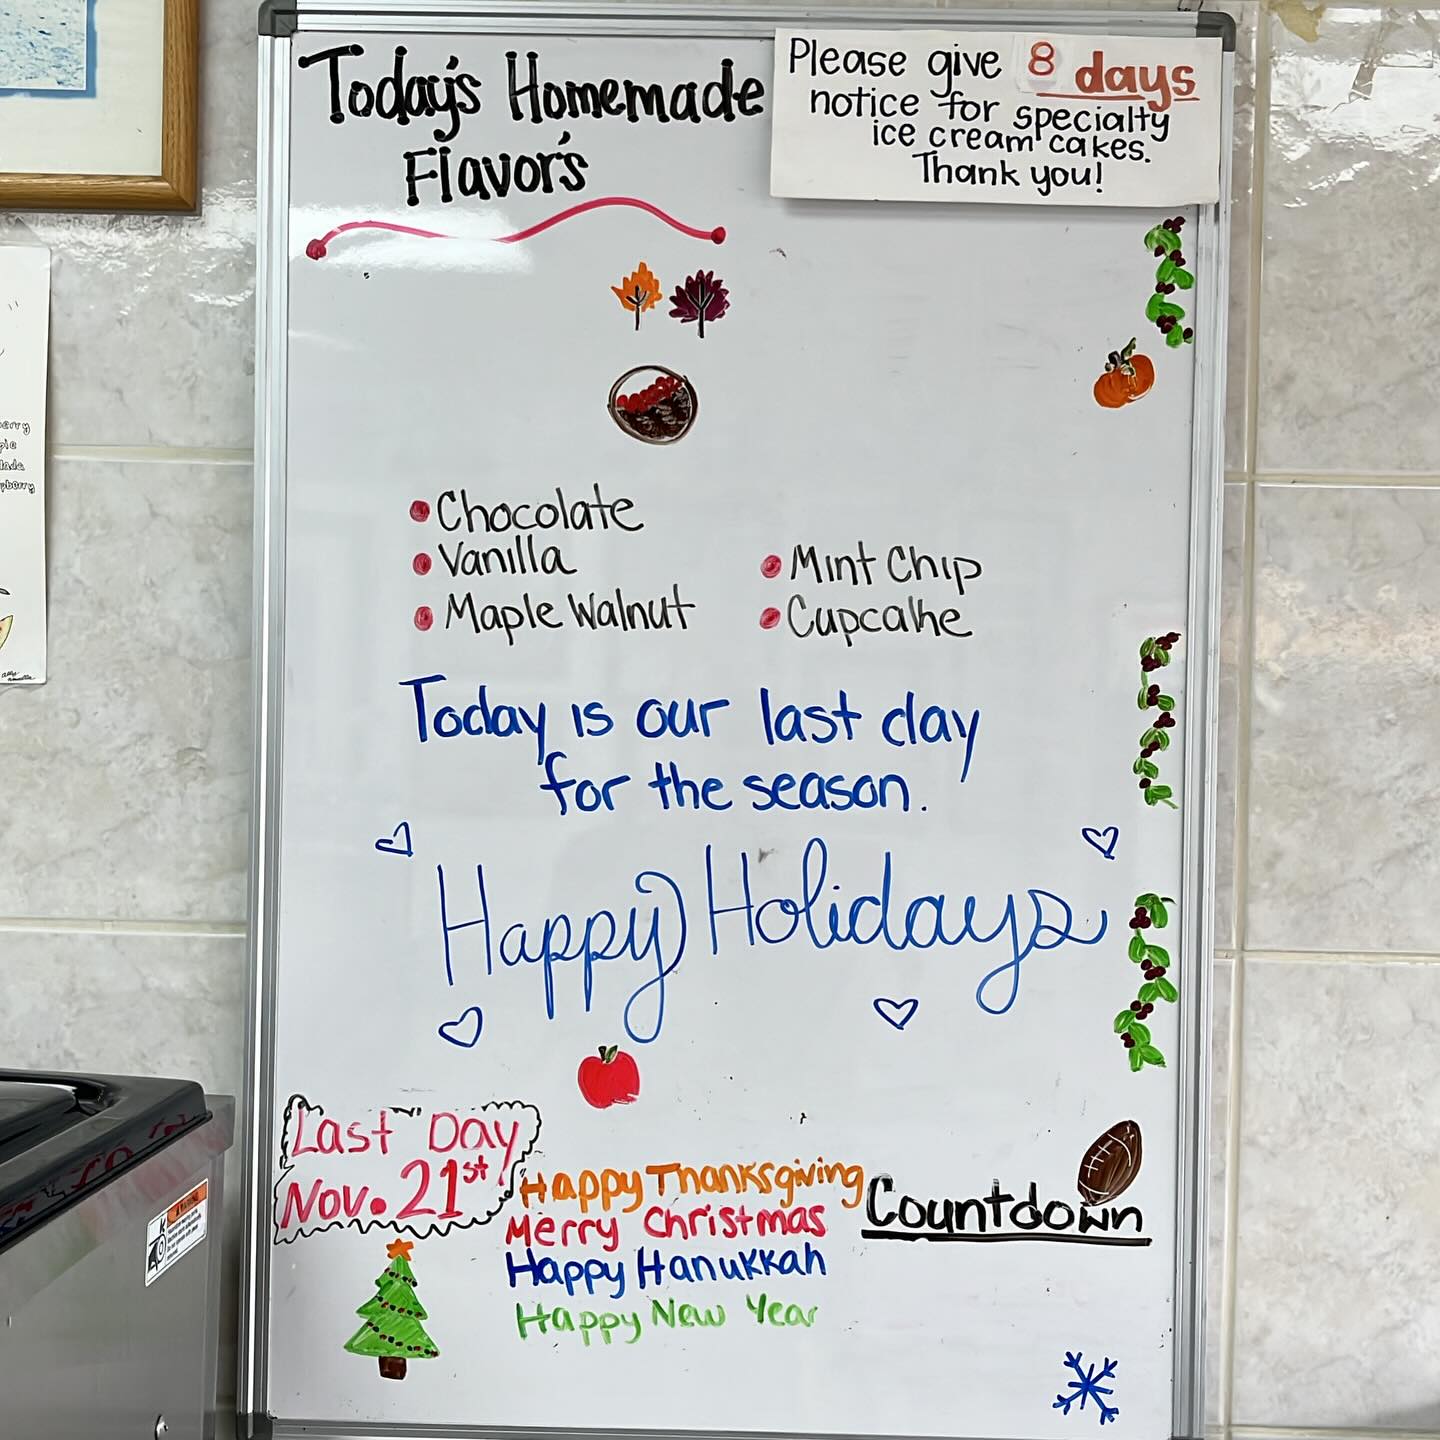 Today's Homemade
Flavor's
Please give 8 days
notice for specialty
ice cream cakes.
Thank you!
Chocolate
Vanilla
Maple Walnut
Mint Chip
Cupcake
Today is our last day
for the season.
Happy Holidays
Last Day
Nov. 21st
Happy Thanksgiving
Merry Christmas
Happy Hanukkah
Happy New Year
Countdown